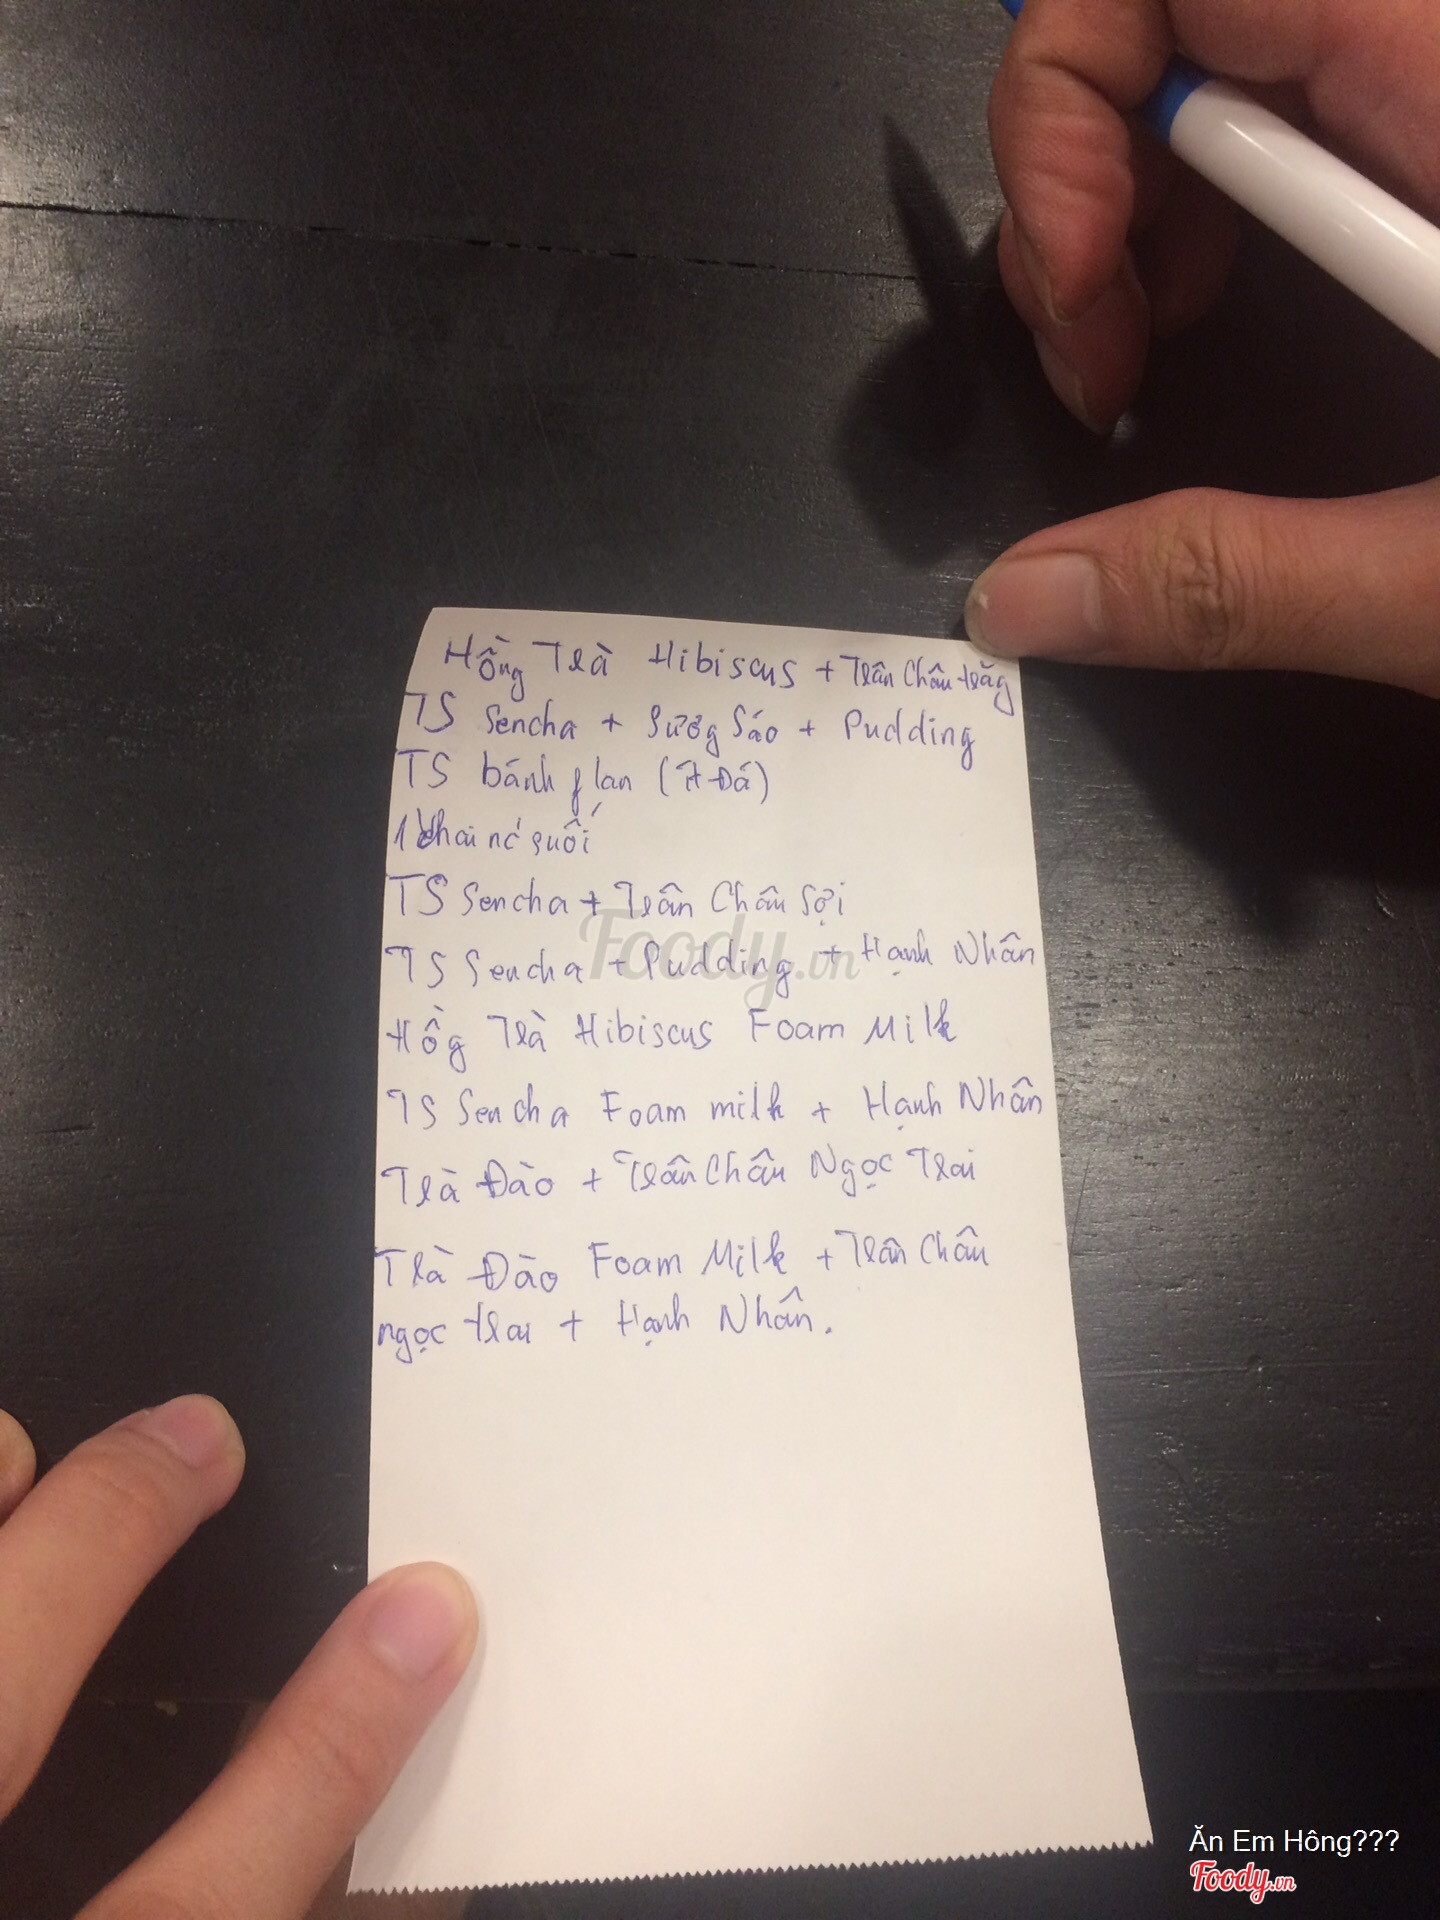 Hồng Trà Hibiscus + Trân Châu trăg
TS Sencha + Sươg Sáo + Pudding
TS bánh flan (ít Đá)
1 chai nc' suối
TS Sencha + Trân Châu Sợi
TS Sencha + Pudding + Hạnh Nhân
Hồg Trà Hibiscus Foam Milk
TS Sencha Foam milk + Hạnh Nhân
Trà Đào + Trân Châu Ngọc Trai
Trà Đào Foam Milk + Trân Châu
ngọc trai + Hạnh Nhân.
Foody.vn
Ăn Em Hông???
Foody.vn